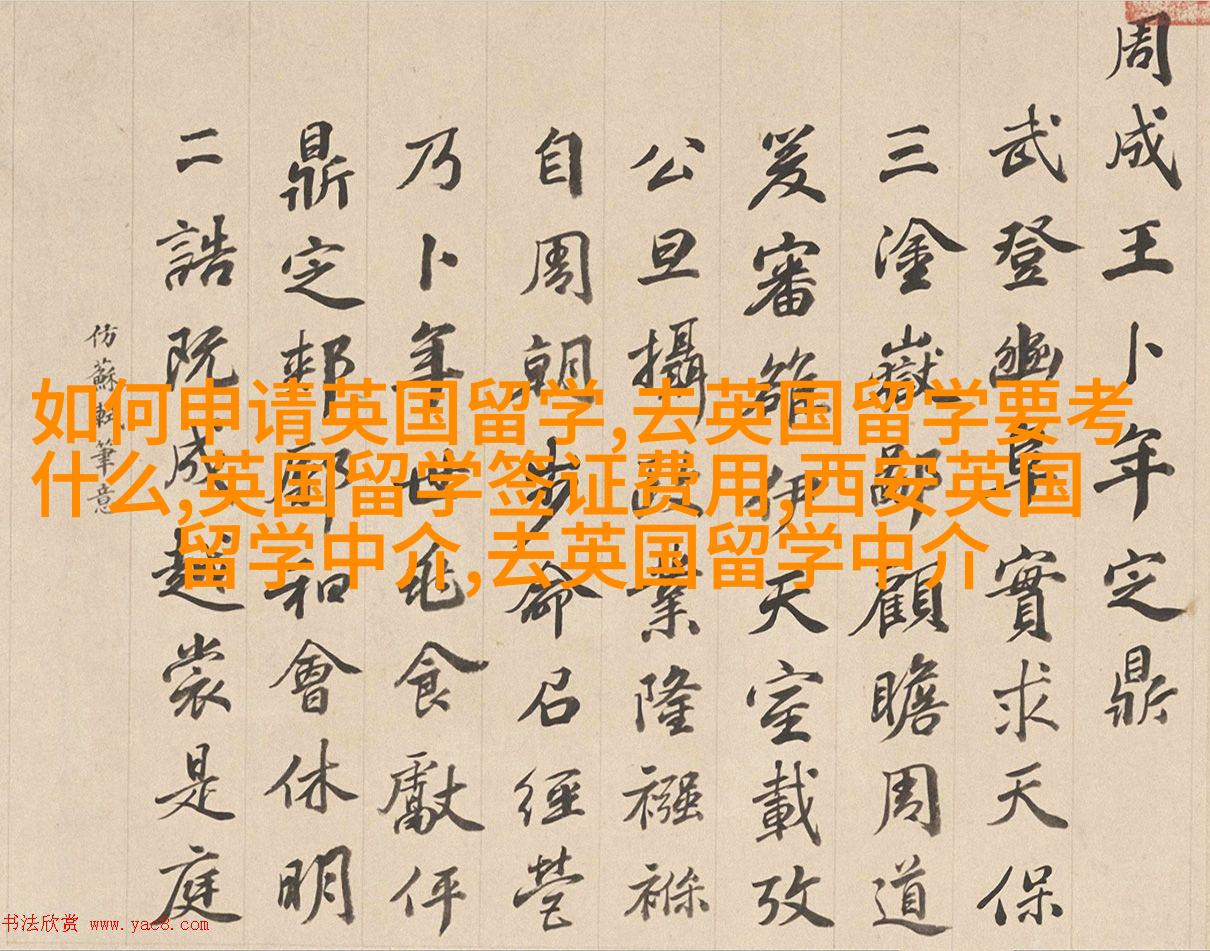 周成王卜年定鼎
武登豳阜實求天保
三塗嶽鄙顧瞻周道
爰審雒伊天室載攷
公旦攝政業隆襁褓
自周朝步命召經營
乃卜年世龜食獻伻
鼎定郟鄏和會休明
二誥既成越裳是庭
仿蘇軾筆意
如何申请英国留学,去英国留学要考
什么,英国留学签证费用,西安英国
留学中介,去英国留学中介
书法欣赏 www.yac8.com